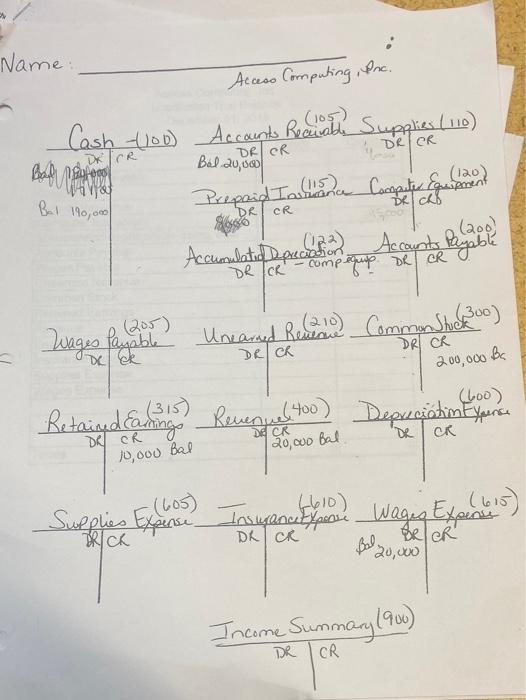 Name:
Access Computing, Inc.
Cash - (100) Accounts Receivable (105) Supplies (110)
DR CR DR CR DR CR
Bal Bal 20,000
Bal 190,000
Prepaid Insurance (115) Computer Equipment (120)
DR CR DR CR
Accumulated Depreciation - comp equip. (122) Accounts Payable (200)
DR CR DR CR
Wages Payable (205) Unearned Revenue (210) Common Stock (300)
DR CR DR CR DR CR
200,000 Ba
Retained Earnings (315) Revenue (400) Depreciation Expense (600)
DR CR DR CR DR CR
10,000 Bal 20,000 Bal
Supplies Expense (605) Insurance Expense (610) Wages Expense (615)
DR CR DR CR DR CR
Bal 20,000
Income Summary (900)
DR CR